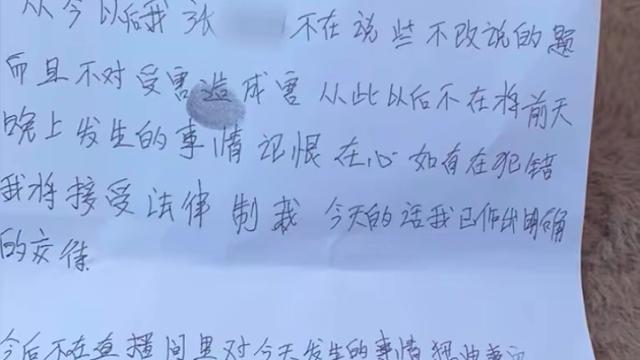 从今以后我张 不在说些不改说的题
而且不对受害造成害 从此以后不在将前天
晚上发生的事情记恨在心 如有在犯错
我将接受法律制裁 今天的话我已作出明确
的交待
今后不在直播间里对今天发生的事情